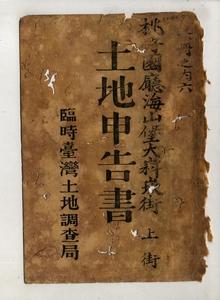 冊之內六
桃園廳海山堡大嵙崁街 上街
土地申告書
臨時臺灣土地調查局